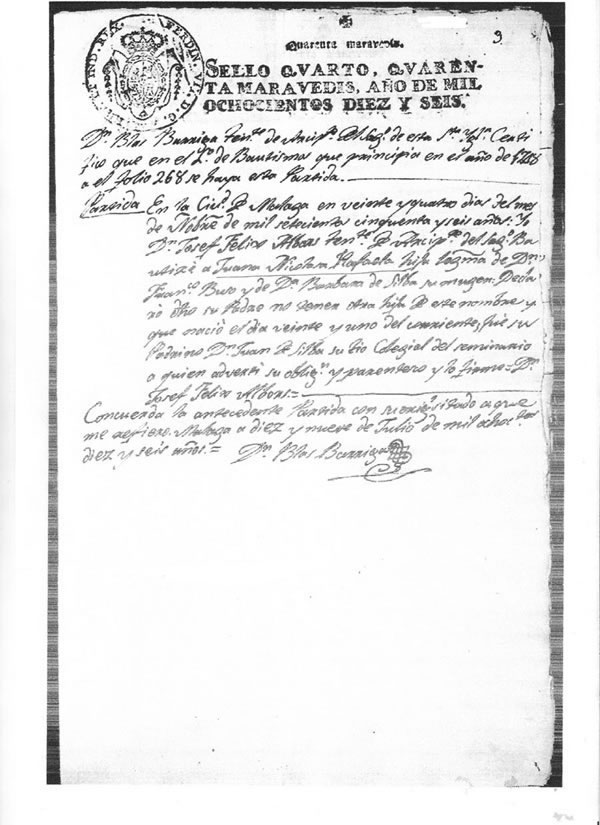 HISP. ET IND. REX. FERDIN. VII. D. G.
3
Quarenta maravedis.
SELLO QVARTO, QVAREN-
TA MARAVEDIS, AÑO DE MIL
OCHOCIENTOS DIEZ Y SEIS.
Dn. Blas Barriga tente. de Sta. Igla. Certi
fico que en el Lo. de Bautismo que principia en el año de 1748
a el folio 268 se haya esta Partida.
Partida En la Ciud. de Malaga en veinte y quatro dias del mes
de Nobre. de mil setecientos cinquenta y seis años: Yo
Dn. Josef Felix Albors tente. del Sagro. Ba
utizé a Juana Nicolasa Rafaela hija lexma. de Dn.
Franco. Buso y de Da. Barbara de Silba su muger. Decla
ro dho su Padre no tener otra hija de este nombre y
que nació el dia veinte y uno del corriente, fue su
Padrino Dn. Juan de Silba su tio Colegial del seminario
a quien adverti su obligon. y parentezco y lo firme = Dn.
Josef Felix Albors =
Concuerda la antecedente Partida con su origl. sitado a que
me refiero. Malaga a diez y nueve de Julio de mil ochoctos.
diez y seis años. = Dn. Blas Barriga